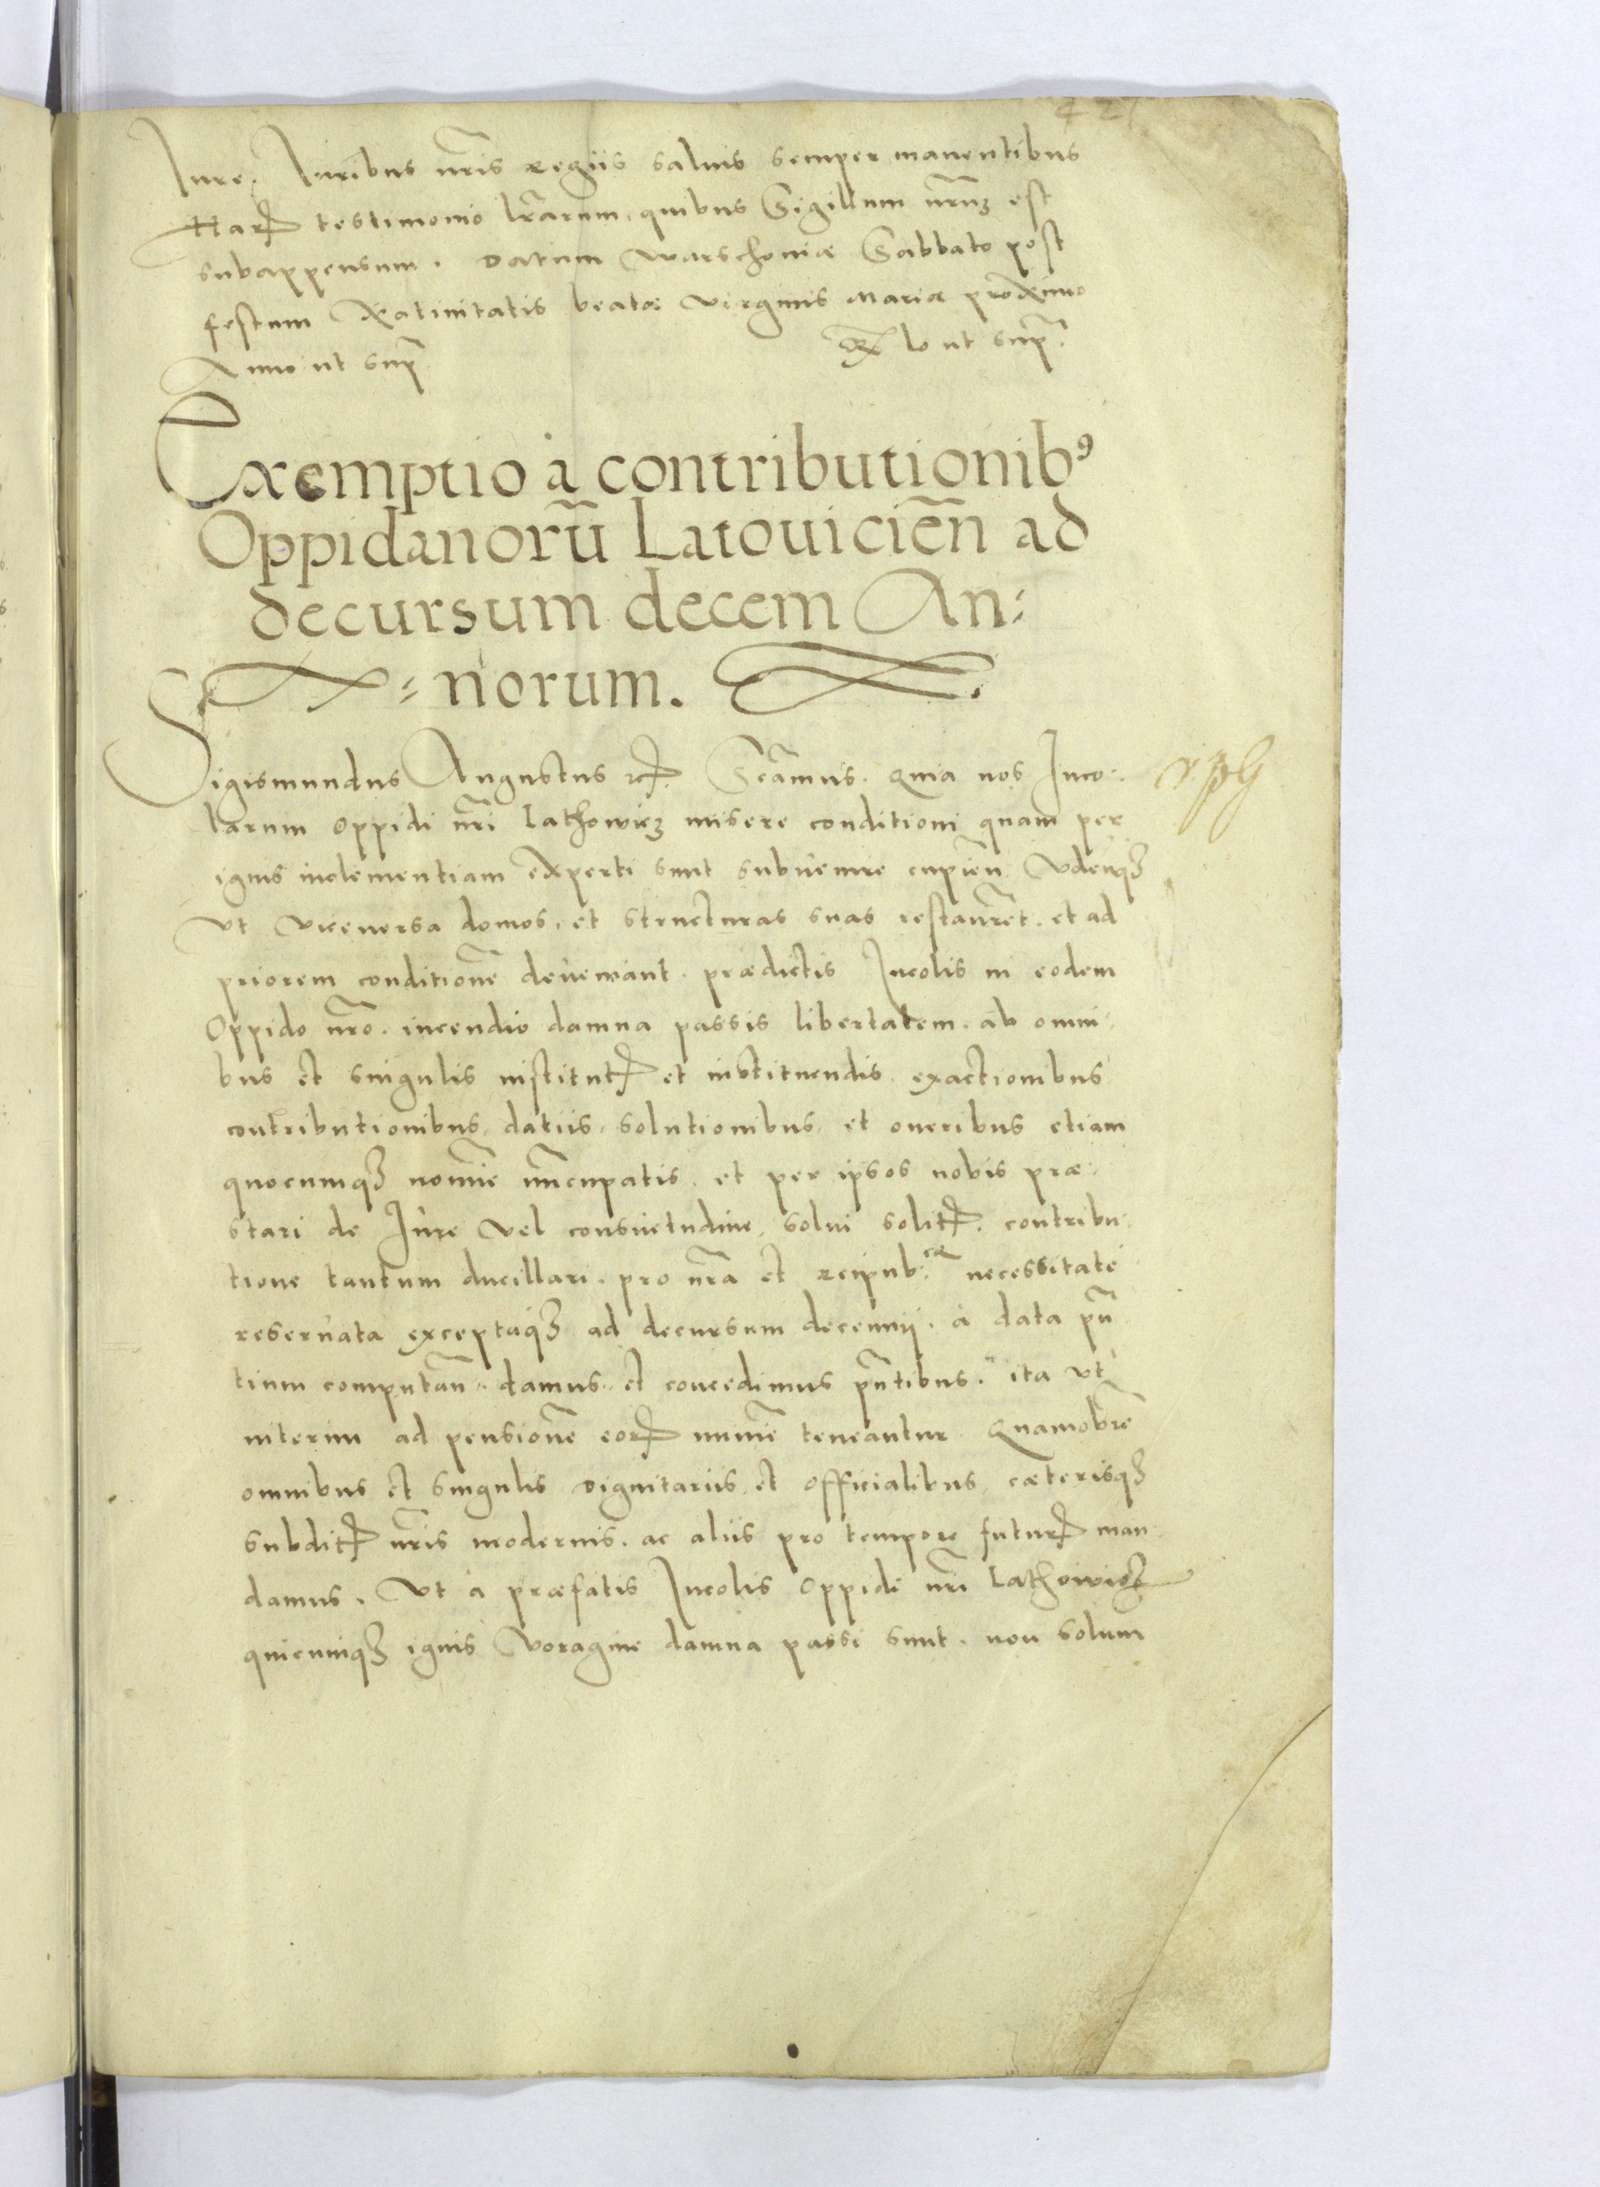 Iure. Iuribus nr̃is regiis saluis semper manentibus
Har testimonio lr̃arum, quibus Sigillum nr̃uꝫ est
subappensum. Datum Warschouiæ Sabbato post
festum Natiuitatis beatæ Virginis Mariæ proximo
Anno ut sup̃
ut sup̃.
Exemptio à contributionibꝰ
Oppidanorũ Latouicień ad
decursum decem An=
=norum.
Sigismundus Augustus Scãmus. Quia nos Inco=
larum oppidi nr̃i Lathowicz misere conditioni quam per
ignis inclementiam experti sunt subuenire cupień
Vt viceuersa domos, et structuras suas restaurēt. et ad
priorem conditionē deueniant. prædictis Incolis in eodem
Oppido nr̃o. incendio damna passis libertatem. ab omni=
bus et singulis institut et instituendis exactionibus
contributionibus, datiis, solutionibus, et oneribus etiam
quocumqꝫ nomīe nũcupatis. et per ipsos nobis præ=
stari de Iure vel consuetudine, solui solit. contribu=
tione tantum ducillari. pro nr̃a et reipub.cæ necessitate
reseruata exceptaqꝫ ad decursum decennij. à data pñ
tium computań. damus. et concedimus pñtibus. ita vt
interim ad pensionē eor minīe teneantur Quamobrē
omnibus et singulis Dignitariis, et Officialibus, cæterisqꝫ
subdit nr̃is modernis. ac aliis pro tempore futur man=
damus. Vt à præfatis Incolis Oppidi nr̃i Lathowicz
quicumqꝫ ignis voragine damna passi sunt. non solum